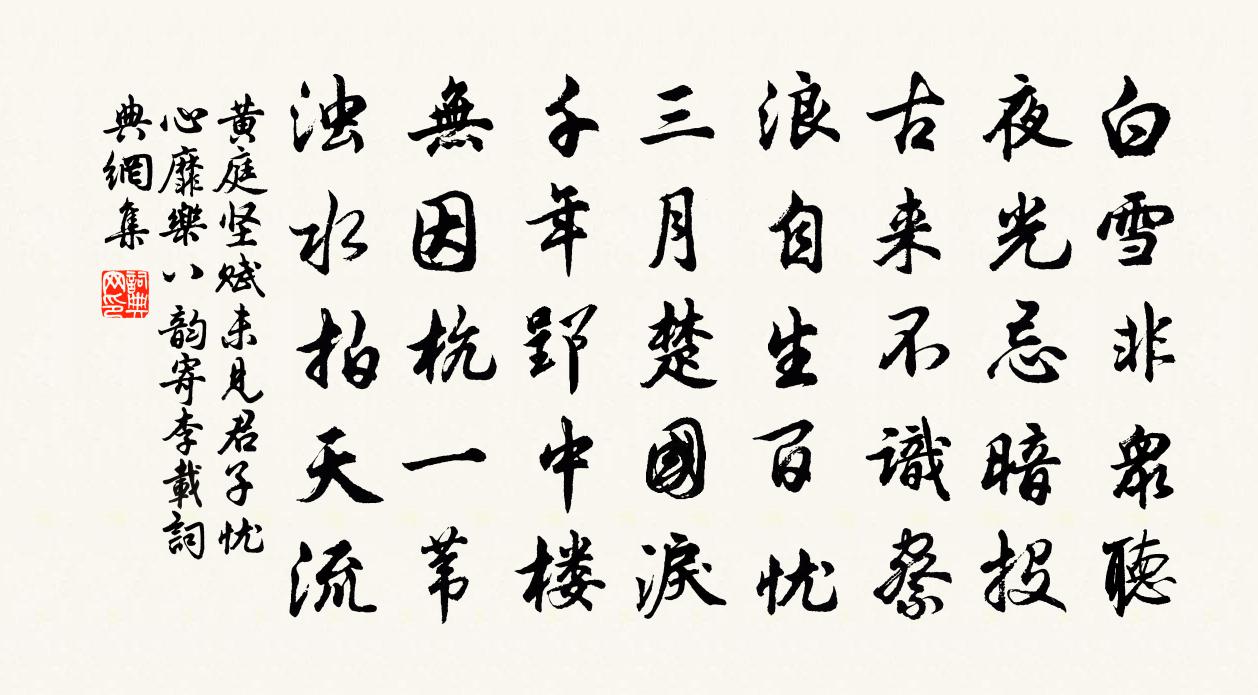 白雪非衆聽
夜光忌暗投
古来不識察
浪自生百忧
三月楚國淚
千年郢中楼
無因杭一苇
浊水拍天流
黄庭坚赋未见君子忧
心靡樂八韵寄李載詞
典網集
詞典
网印